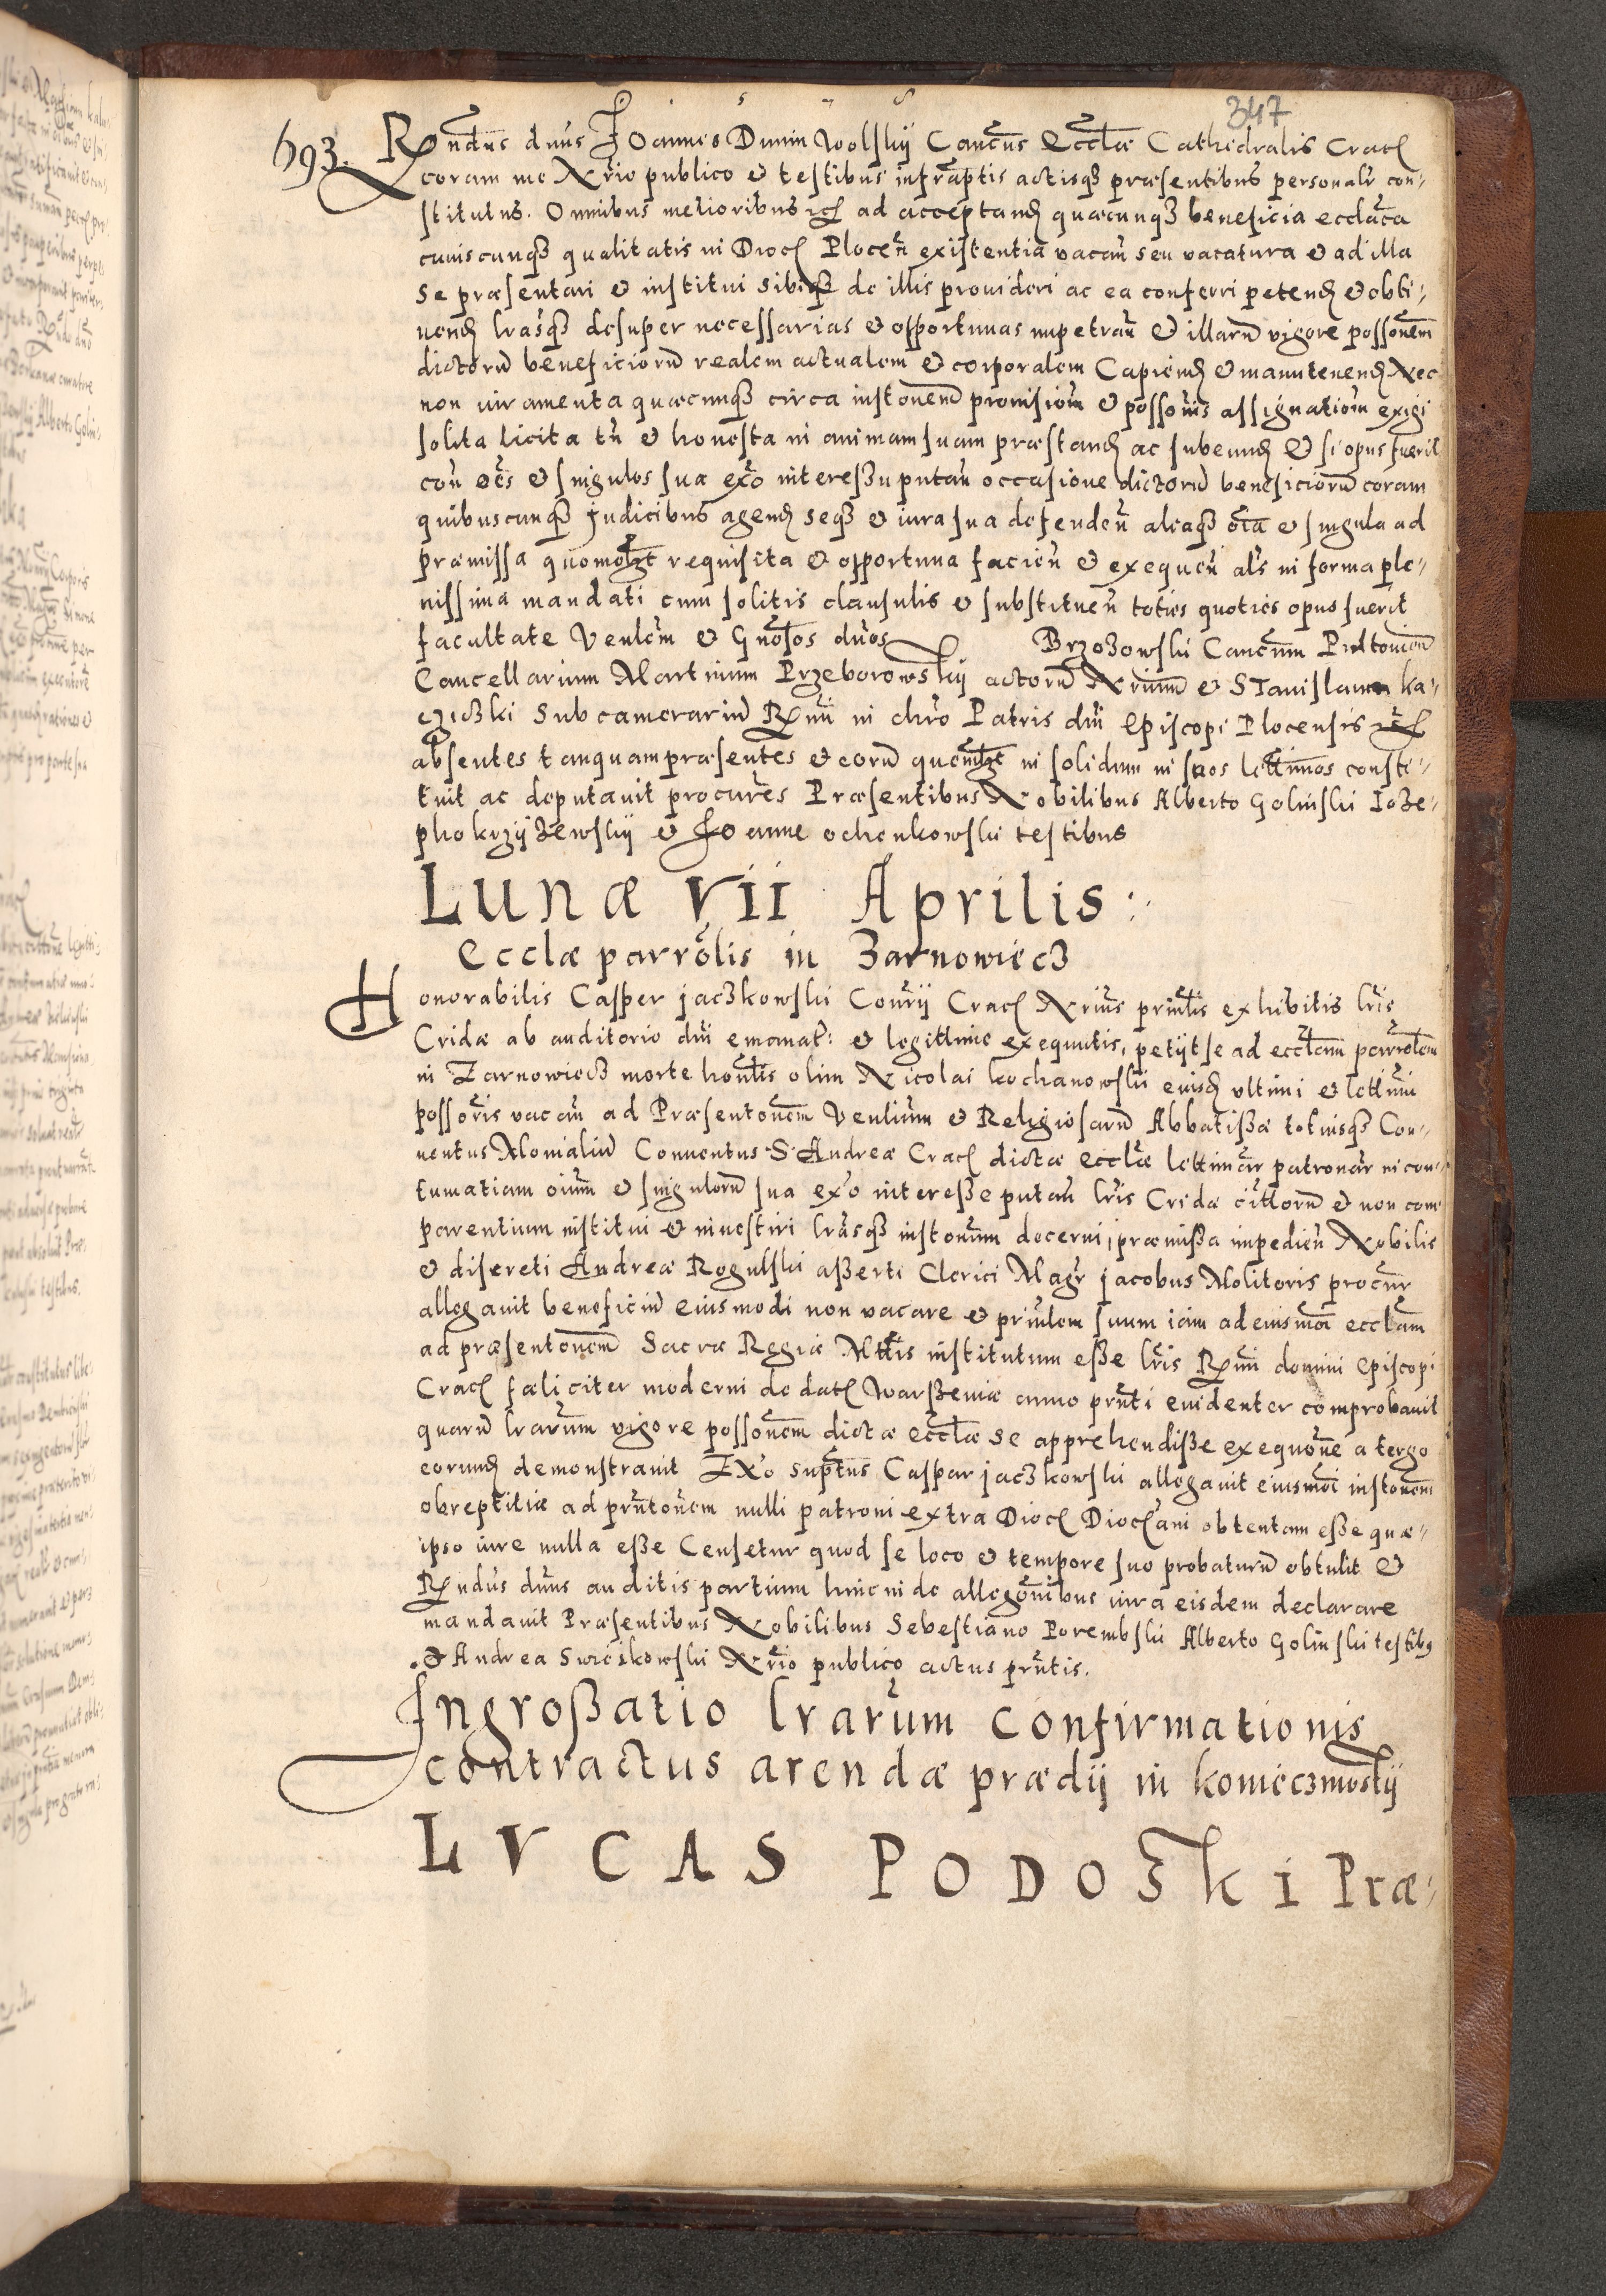 347
693. Rndus dnus Joannes Dunin Wolskij Cancus Ecclæ Cathedralis Crac
coram me Nrio publico et testibus infraptis actisq præsentibus personalr con-
stitutus. Omnibus melioribus etc ad acceptand quæcunq beneficia ecclaca
cuiuscunq qualitatis in Dioc Plocen existentia vacan seu vacatura et ad illa
se præsentari et institui sibiq de illis prouideri ac ea conferri petend et obti-
nend lrasq desuper necessarias et opportunas impetran et illaru vigore possonem
dictoru beneficioru realem actualem et corporalem Capiend et manutenend Nec
non iuramenta quæcunq circa instonem prouision et possonis assignationu exigi
solita licita tn et honesta in animam suam præstand ac subeund et si opus fuerit
con oes et singulos sua exo interesse putan occasione dictoru beneficioru coram
quibuscunq Judicibus agend seq et iura sua defenden aliaq oia et singula ad
præmissa quomolzt requisita et opportuna facien et exequen als in forma ple-
nissima mandati cum solitis clausulis et substituen toties quoties opus fuerit
facultate Venlem et Gnosos dnos Brzozowski Cancnum Pultouien
Cancellarium Martinum Przeborowskij actoru Nrium et Stanislaum ka-
czicski Subcamerariu Rmi in chro Patris dni Episcopi Plocensis etc
absentes tanquam præsentes et eoru quemlzt in solidum in suos lettimos consti-
tuit ac deputauit procures Præsentibus Nobilibus Alberto Golinski Ioze-
pho krzijzewskij et Joanne ochenkowski testibus
Lunæ VII Aprilis:
Ecclæ parrolis in Zarnowiecz
Honorabilis Casper jaczkowski Conrij Crac Nrius prinlis exhibitis lris
Cridæ ab auditorio dni emanat: et legittime exequutis, petijt se ad ecclam parrolem
in Zarnowiecz morte honlis olim Nicolai kochanowski eiusd vltimi et lettimi
possoris vacan ad Præsentonem Venlium et Religiosaru Abbatissæ totiusq Con-
uentus Monialiu Conuentus S Andreæ Crac dictæ ecclæ lettimar patronar in con-
tumatiam oium et singuloru sua exo interesse putan lris Cridæ cittoru et non com
parentium institui et inuestiri lrasq instonum decerni, præmissa impedien Nobilis
et discreti Andreæ Rogulski asserti Clerici Magr jacobus Molitoris procur
allegauit beneficiu eiusmodi non vacare et prinlem suum iam ad eiusmoi ecclam
ad præsentonem Sacræ Regiæ Mttis institutum esse lris Rmi domini Episcopi
Crac fæliciter moderni de dat Warsseuiæ anno prnti euidenter comprobauit
quaru lrarum vigore possonem dictæ ecclæ se apprehendisse exequone a tergo
eorund demonstrauit Exo suptus Caspar jaczkowski allegauit eiusmoi instonem
obreptitiæ ad prntonem nulli patroni extra Dioc Diocani obtentam esse quæ-
ipso iure nulla esse Censetur quod se loco et tempore suo probaturu obtulit et
Rndus dnus auditis partium hinc inde allegonibus iura eisdem declarare
mandauit Præsentibus Nobilibus Sebestiano Porembski Alberto Golinski testibus
et Andrea Swieskowski Nrio publico actus prntis.
Ingrossatio lrarum confirmationis
contractus arendæ prædij in koniecmostij
LVCAS PODOSki Præ-